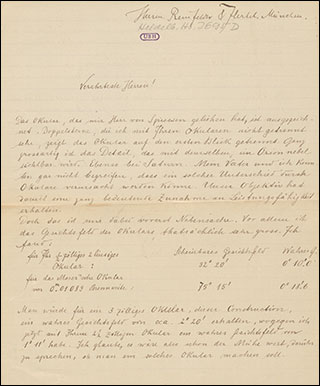 Herrn Reinfelder & Hertel, München.
Heidelb. Hs. 3695 D
UBH
Verehrteste Herren!
Das Okular, das mir Herr von Spiessen geliehen hat, ist ausgezeich-
net. Doppelsterne, die ich mit Ihren Okularen nicht getrennt
sehe, zeigt das Okular auf den ersten Blick getrennt. Ganz
grossartig ist das Detail, das mit demselben, im Orion nebel
sichtbar wird. Ebenso bei Saturn. Mein Vater und ich konn-
ten gar nicht begreifen, dass ein solcher Unterschied durch
Okulare verursacht werden könne. Unser Objektiv hat
damit eine ganz bedeutende Zunahme an Leistungsfähigkeit
erhalten.
Doch das ist nur dabei Nebensache. Vor allem ist
das Gesichtsfeld des Okulars thatsächlich sehr gross. Ich
fand:
Scheinbares Gesichtsfeld Wahres G.
für Ihr zölliges linsiges
Okular: 32° 20' 0° 10.'0
für das Okular
von 0.m01089 Brennweite: 78° 15' 0° 18.'6
Man würde für ein 3 zölliges Okular, dieser Construction,
ein wahres Gesichtsfeld von cca. 2° 20' erhalten, wogegen ich
jetzt mit Ihrem 2½ zölligen Okular ein wahres Gesichtsfeld von
1° 11' habe. Ich glaube, es wäre also schon der Mühe wert, darüber
zu sprechen, ob man ein solches Okular machen will.